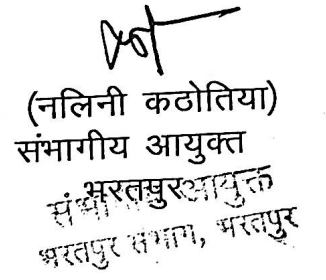 (नलिनी कठोतिया)
संभागीय आयुक्त
भरतपुर
संभागीय आयुक्त
भरतपुर संभाग, भरतपुर